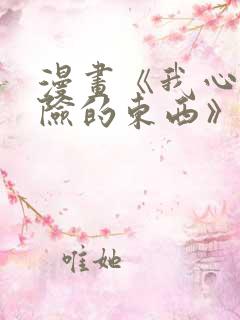 漫畫《我心
險的東西》
唯她